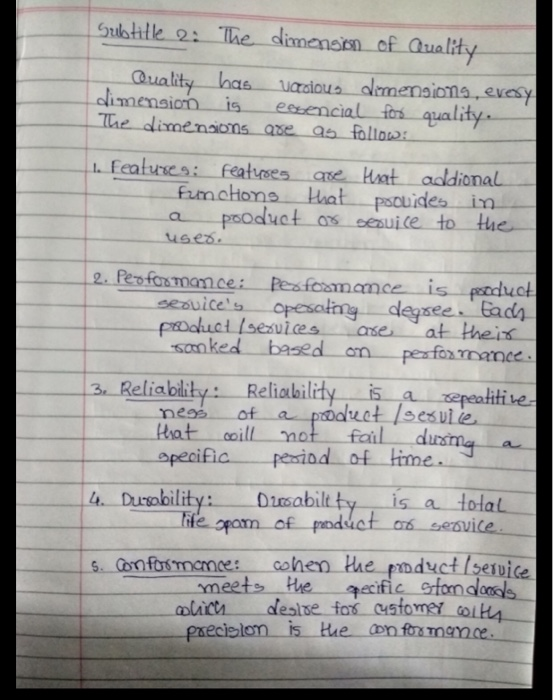 Subtitle 2: The dimension of Quality
Quality has various dimensions, every
dimension is essencial for quality.
The dimensions are as follow:
1. Features: features are that addional
functions that provides in
a product or service to the
user.
2. Performance: Performance is product
service's operating degree. Each
product/services are at their
ranked based on performance.
3. Reliability: Reliability is a repeatitive-
ness of a product/service
that will not fail during a
specific period of time.
4. Durability: Durability is a total
life span of product or service.
5. Conformance: when the product/service
meets the specific standards
which desire for customer with
precision is the conformance.